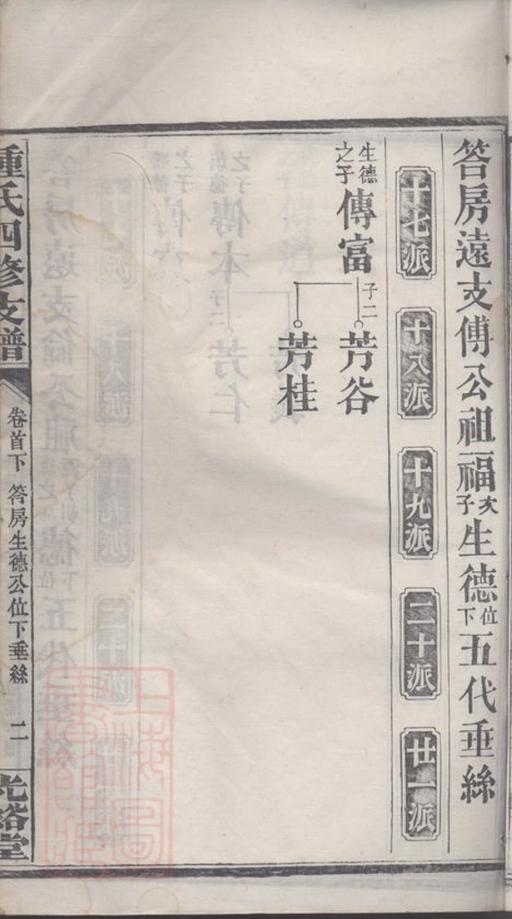 答房遠支傳公祖福次子生德位下五代垂絲
十七派
十八派
十九派
二十派
廿一派
生德之子傳富子二
芳谷
芳桂
鍾氏四修支譜
卷首下
答房生德公位下垂絲
二
光裕堂